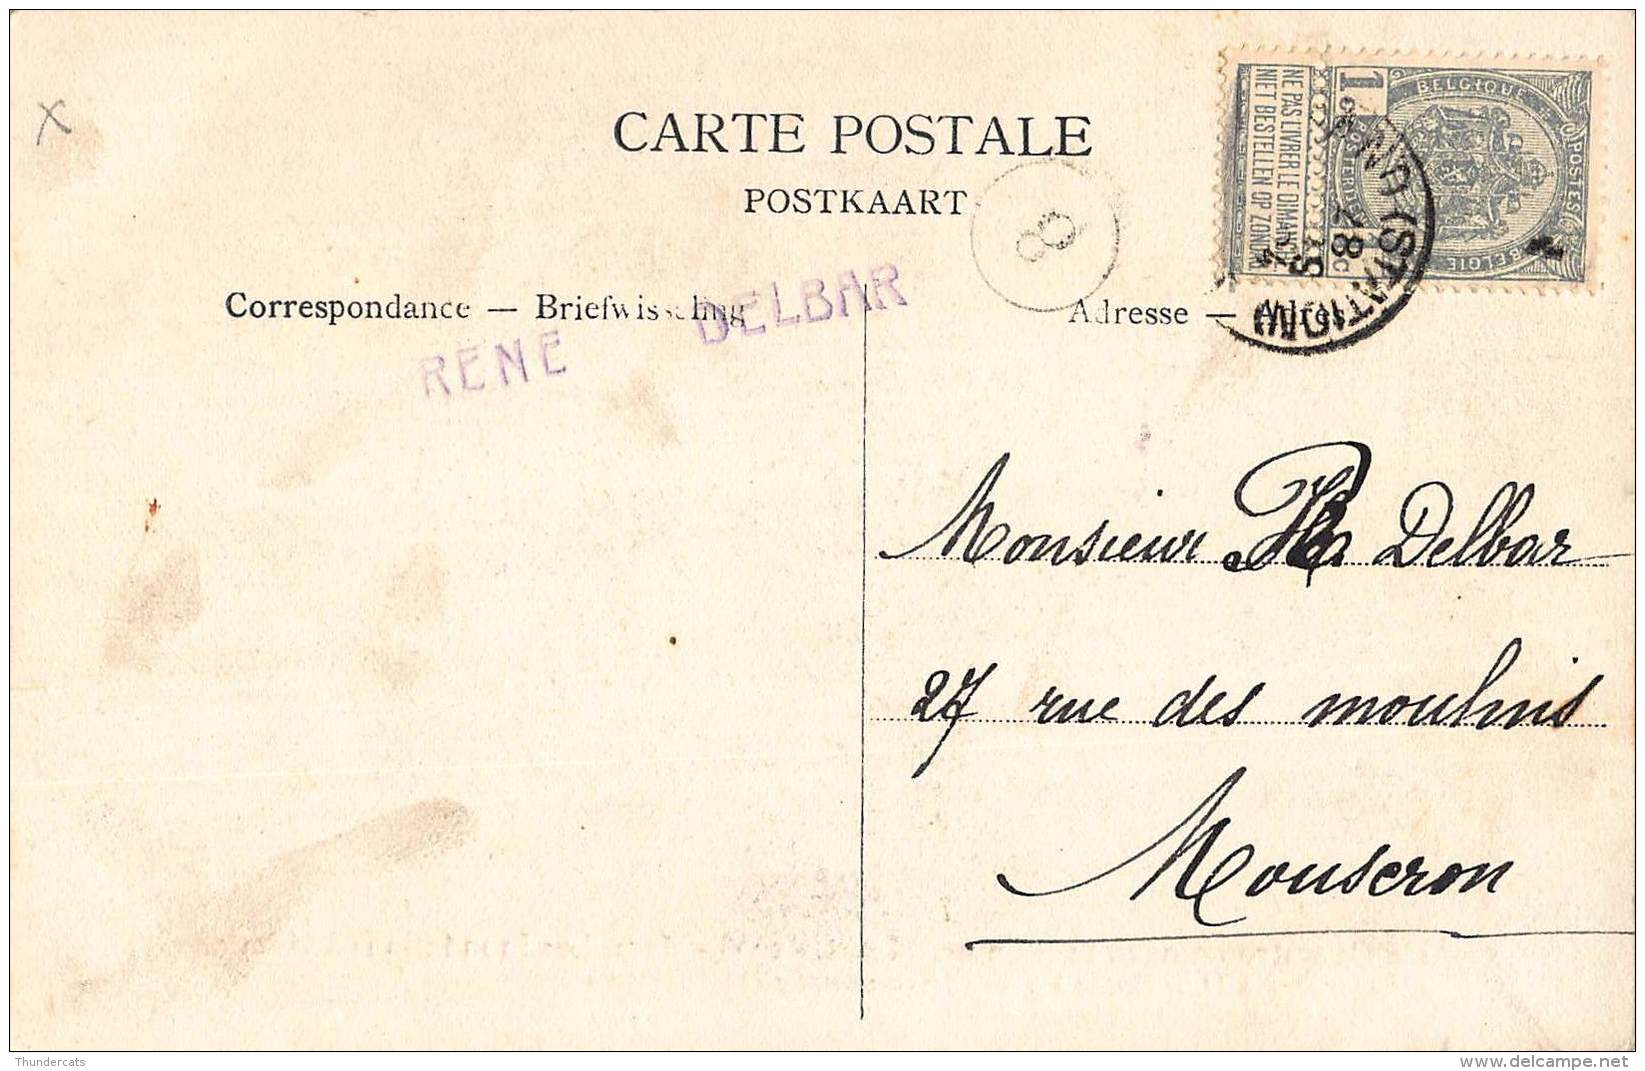 CARTE POSTALE
POSTKAART
Correspondance — Briefwisseling
RENE DELBAR
8
Adresse — Adres
1
NE PAS LIVRER LE DIMANCHE
NIET BESTELLEN OP ZONDAG
BELGIQUE
POSTES
BELGIE
(STATION)
28
Monsieur R Delbar
27 rue des moulins
Mouscron
Thundercats
delcampe.net